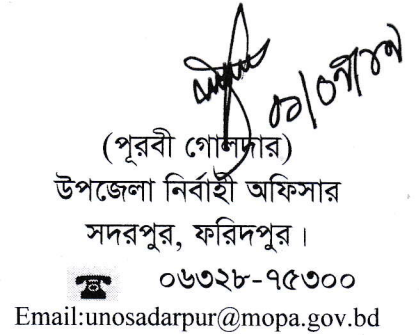 (পূরবী গোলদার)
উপজেলা নির্বাহী অফিসার
সদরপুর, ফরিদপুর।
☎ ০৬৩২৮-৭৫৩০০
Email:unosadarpur@mopa.gov.bd